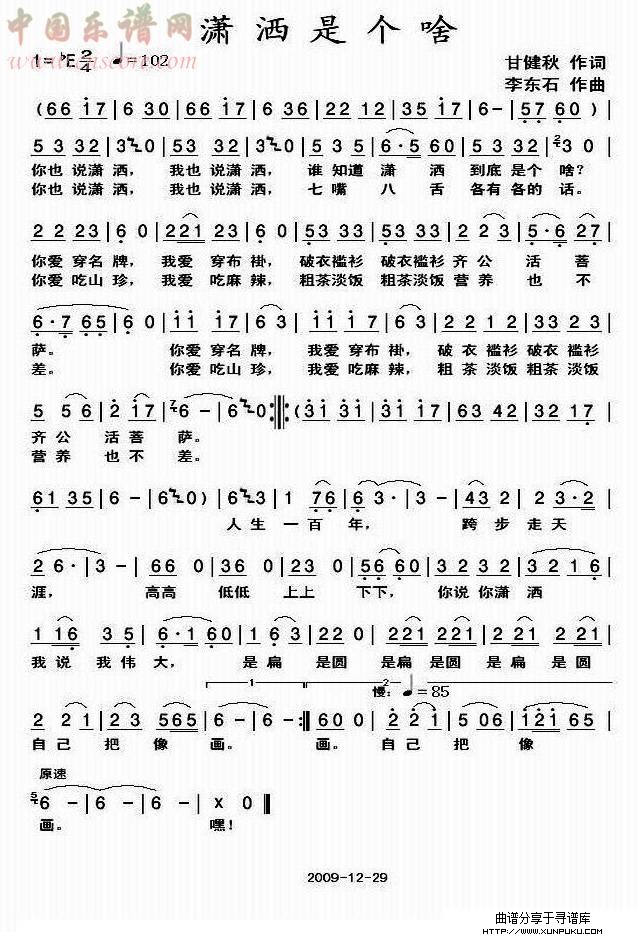 中国乐谱网
www.cnscore.com
潇洒是个啥
1=♭E 2/4 ♩=102
甘健秋 作词
李东石 作曲
(66 17|6 30|66 17|6 36|22 12|35 12|6-|57 60)|
5 3 32|3 0|53 32|3 0|5 35|6·5 60|53 32|3 0|
你也说潇洒， 我也说潇洒， 谁知道潇洒到底是个啥？
你也说潇洒， 我也说潇洒， 七嘴八舌各有各的话。
2 2 23|6 0|221 23|6 0|53 33|53 33|2 3|5·6 27|
你爱穿名牌， 我爱穿布褂， 破衣褴衫破衣褴衫齐公活菩
你爱吃山珍， 我爱吃麻辣， 粗茶淡饭粗茶淡饭营养也不
6·7 65|6 0|11 17|6 3|11 17|6 3|2 2 12|3 2 12|
萨。 你爱穿名牌， 我爱穿布褂， 破衣褴衫破衣褴衫
差。 你爱吃山珍， 我爱吃麻辣， 粗茶淡饭粗茶淡饭
5 5 6|2 17|6-|6 0:‖:(31 31|31 17|63 42|32 17|
齐公活菩萨。
营养也不差。
61 35|6-|6 0)|6 3|1 76|6 3·|3-|43 2|2 3·2|
人生一百年， 跨步走天
2 6·|3-|66 0|36 0|23 0|56 60|3 2 32|3 2 1 6|
涯， 高高 低低 上上 下下， 你说你潇洒
1 16 3 5|6·1 60|1 6 3|2 0 2|221 2|221 2|2 2 21|
我说我伟大， 是扁是圆是扁是圆是扁是圆
1 2 慢：♩=85
2 2 1|2 3 565|6-|6-:‖60 0|2 2 1|5 06|121 65|
自己把像画。 画。 自己把像
原速
6-|6-|6-|X 0‖
画。 嘿！
2009-12-29
曲谱分享于寻谱库
WWW.XUNPUKU.COM